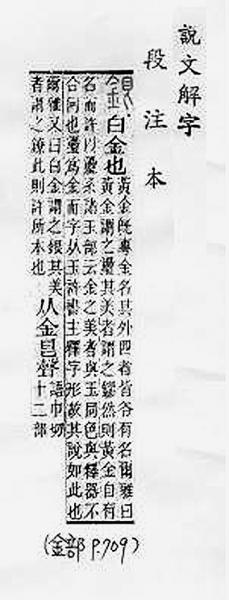 說文解字
段注本
銀白金也
黃金旣專金名其外四者皆各有名爾雅曰
黃金謂之璗其美者謂之鏐然則黃金自有
名而許以璗系諸玉部云金之美者與玉同色與釋器不
合何也璗爲金而字从玉許書主釋字形故其說如此也
爾雅又曰白金謂之銀其美
者謂之鐐此則許所本也
从金㫐聲
語巾切
十二部
(金部 P.709)